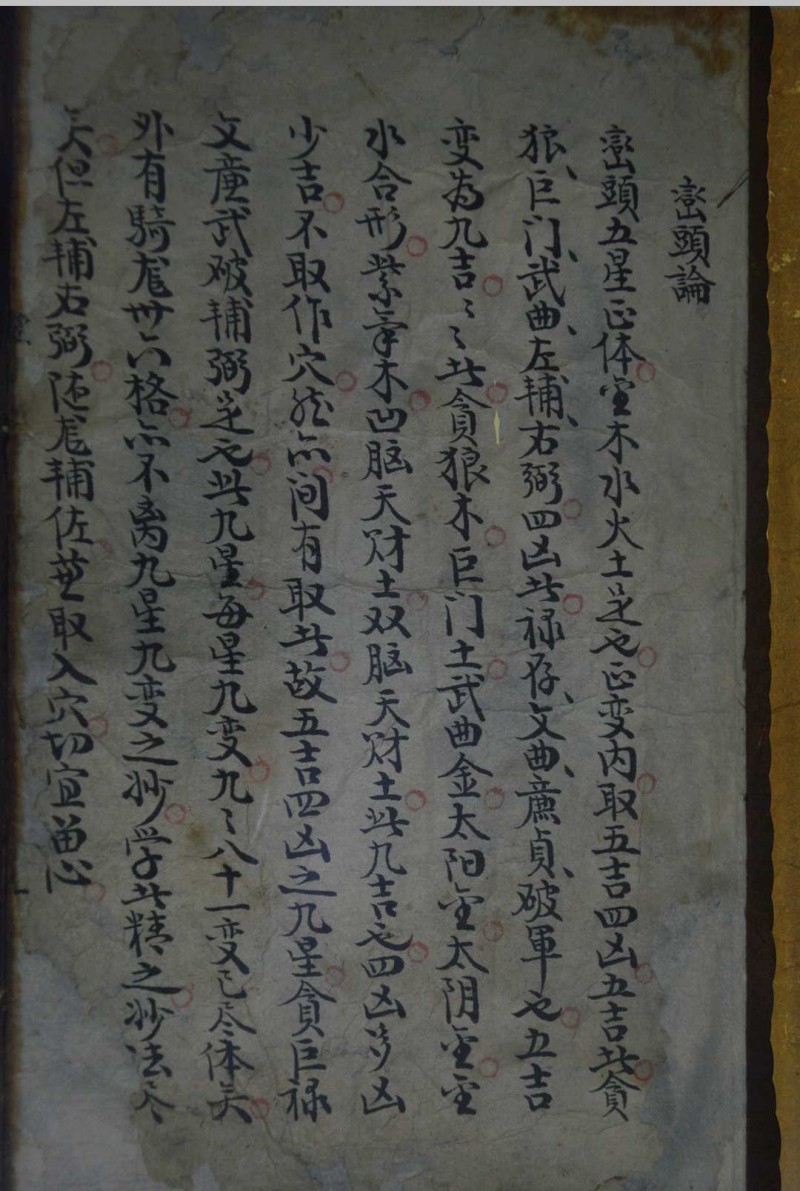 巒頭論
巒頭五星正体金木水火土是也正变内取五吉四凶五吉者貪
狼、巨门、武曲、左輔、右弼四凶者禄存、文曲、廉貞、破軍也五吉
变为九吉〻〻者貪狼木巨门土武曲金太阳金太阴金金
水合形紫氣木凹脑天财土双脑天财土此九吉也四凶多凶
少吉不取作穴然亦间有取者故五吉四凶之九星貪巨禄
文廉武破輔弼是也此九星每星九变九〻八十一变已尽体矣
外有騎龙卅六格亦不离九星九变之妙学者精之妙法尽
矣但左輔右弼随龙輔佐並取入穴切宜留心